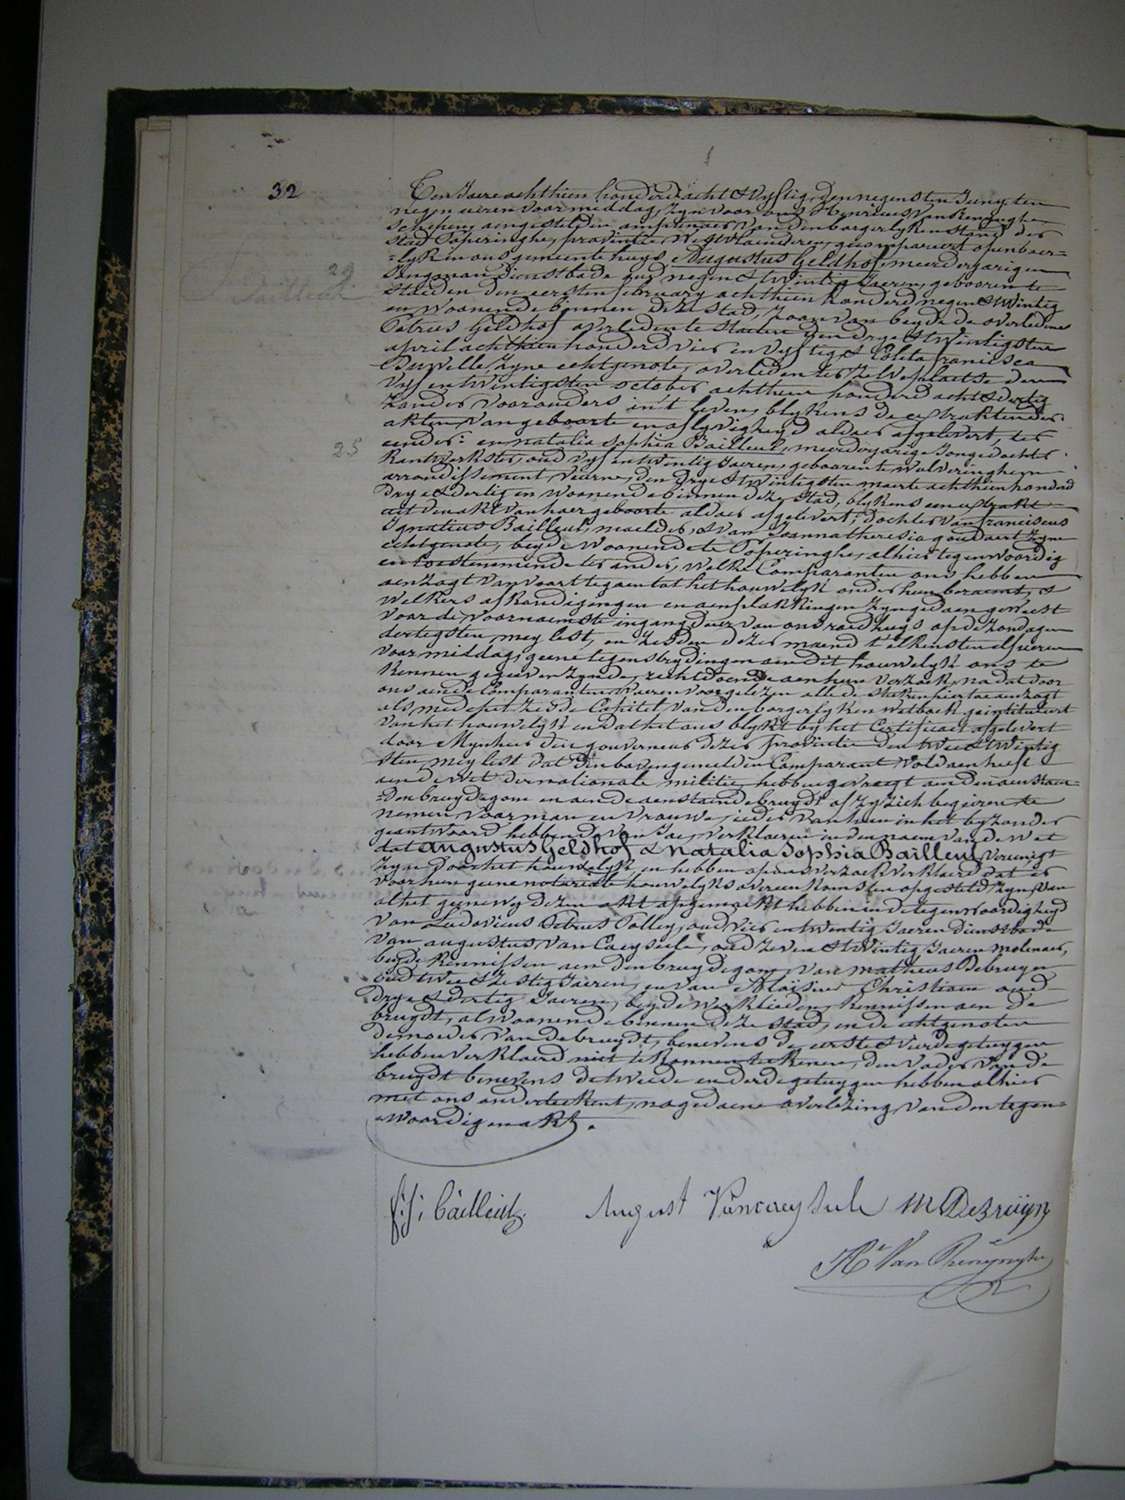 32
Ten Jaere achthien honderd acht & vyftig, den negensten Juny, ten
negen uren voormiddag, zyn voor ons Henricus van Renynghe
schepene aengestelden amptenaer van den borgerlyken stand der
stad Poperinghe, provintie Westvlaenderen, gecompareert openbaer-
-lyk in ons gemeente huys Augustus Geldhof meerderjarigen
29
Jongman dienstbode oud negen & twintig Jaeren, gebooren te
Staden den eersten february achthien honderd negen & twintig
en woonende binnen deze stad, zoon van beyde de overledene
Petrus Geldhof overleden te Staden den drye & twintigsten
april achthien honderd vier en vyftig & Colita francisca
zyne echtgenote, overleden ter zelve plaetse den
vyf en twintigsten october achthien honderd acht & dertig
zonder voorouders in't leven, blykens de extrakten der
akten van geboorte en aflyvigheyd aldaer afgelevert, ter
25
eender: en natalia sophia Bailleul, meerderjarige Jongedochter
kantwerkster, oud vyf en twintig Jaeren, gebooren te Wulveringhem
arrondissement Veurne, den drye & twintigsten maerte achthien honderd
drye & dertig en woonende binnen deze stad, blykens een extrakt
uit den akt van haer geboorte aldaer afgelevert; dochter van franciscus
Ignatius Bailleul, maelder, & van Joanna theresia goudaert zyne
echtgenote, beyde woonende te Poperinghe, alhier tegenwoordig
en toestemmende ter ander, welke Comparanten ons hebben
aenzogt van voort te gaen tot het houwelyk onder hun beraemt, &
welkers afkondigingen en aenplakkingen zyn gedaen geweest
voor de voornaemste ingang deur van ons raedhuys op de zondagen
dertigsten mey lest, en zesden dezer maend t'elkens ten elf uren
voormiddag, geene tegenstrydingen aen dit houwelyk ons te
kennen gegeven zynde, recht doende aen hun verzoek, na dat door
ons aen de Comparanten waeren voorgelezen alle de stukken hiertoe aenzogt
als mede het zesde Capitel van den borgerlyken wetboek geintituleert
van het houwelyk en dat het ons blykt by het Certificaet afgelevert
door Mynheer den gouverneur dezer provintie den twee & twintig
sten mey lest dat den bovengemelden Comparant voldaen heeft
aen de wet der nationale militie, hebben gevraegt aen den aenstaen-
-den bruydegom en aen de aenstaende bruydt of zy zich begeeren te
nemen voor man en vrouwe, ieder van hun in het byzonder
geantwoord hebbende van Jae, verklaeren in den naem van de wet
dat Augustus Geldhof & Natalia Sophia Bailleul vereenigt
zyn door het houwelyk en hebben op ons verzoek verklaerd dat er
voor hun geene notariele houwelyks overeenkomsten opgesteld zyn van
al het geene wy dezen akt opgemaekt hebben in de tegenwoordigheyd
van Ludovicus Petrus Polley, oud vier en twintig Jaeren dienstbode
van augustus Van Caeyseele, oud zeven & twintig Jaeren molenaer,
beyde kennissen aen den bruydegom, van matheus Debruyn
oud twee & zestig Jaeren, en van Aloisius Christiaen oud
drye & dertig Jaeren, beyde werklieden, kennissen aen de
bruydt, al woonende binnen deze stad, en de echtgenoten
de moeder van de bruydt, benevens de eerste & vierde getuygen
hebben verklaerd niet te konnen teekenen, den vader van de
bruydt benevens de tweede en derde getuygen hebben alhier
met ons onderteekent, na gedaene overlezing van den tegen-
-woordigen akt.
f: i: bailleul August Vancaeysele M Debruyn
He Van Renynghe